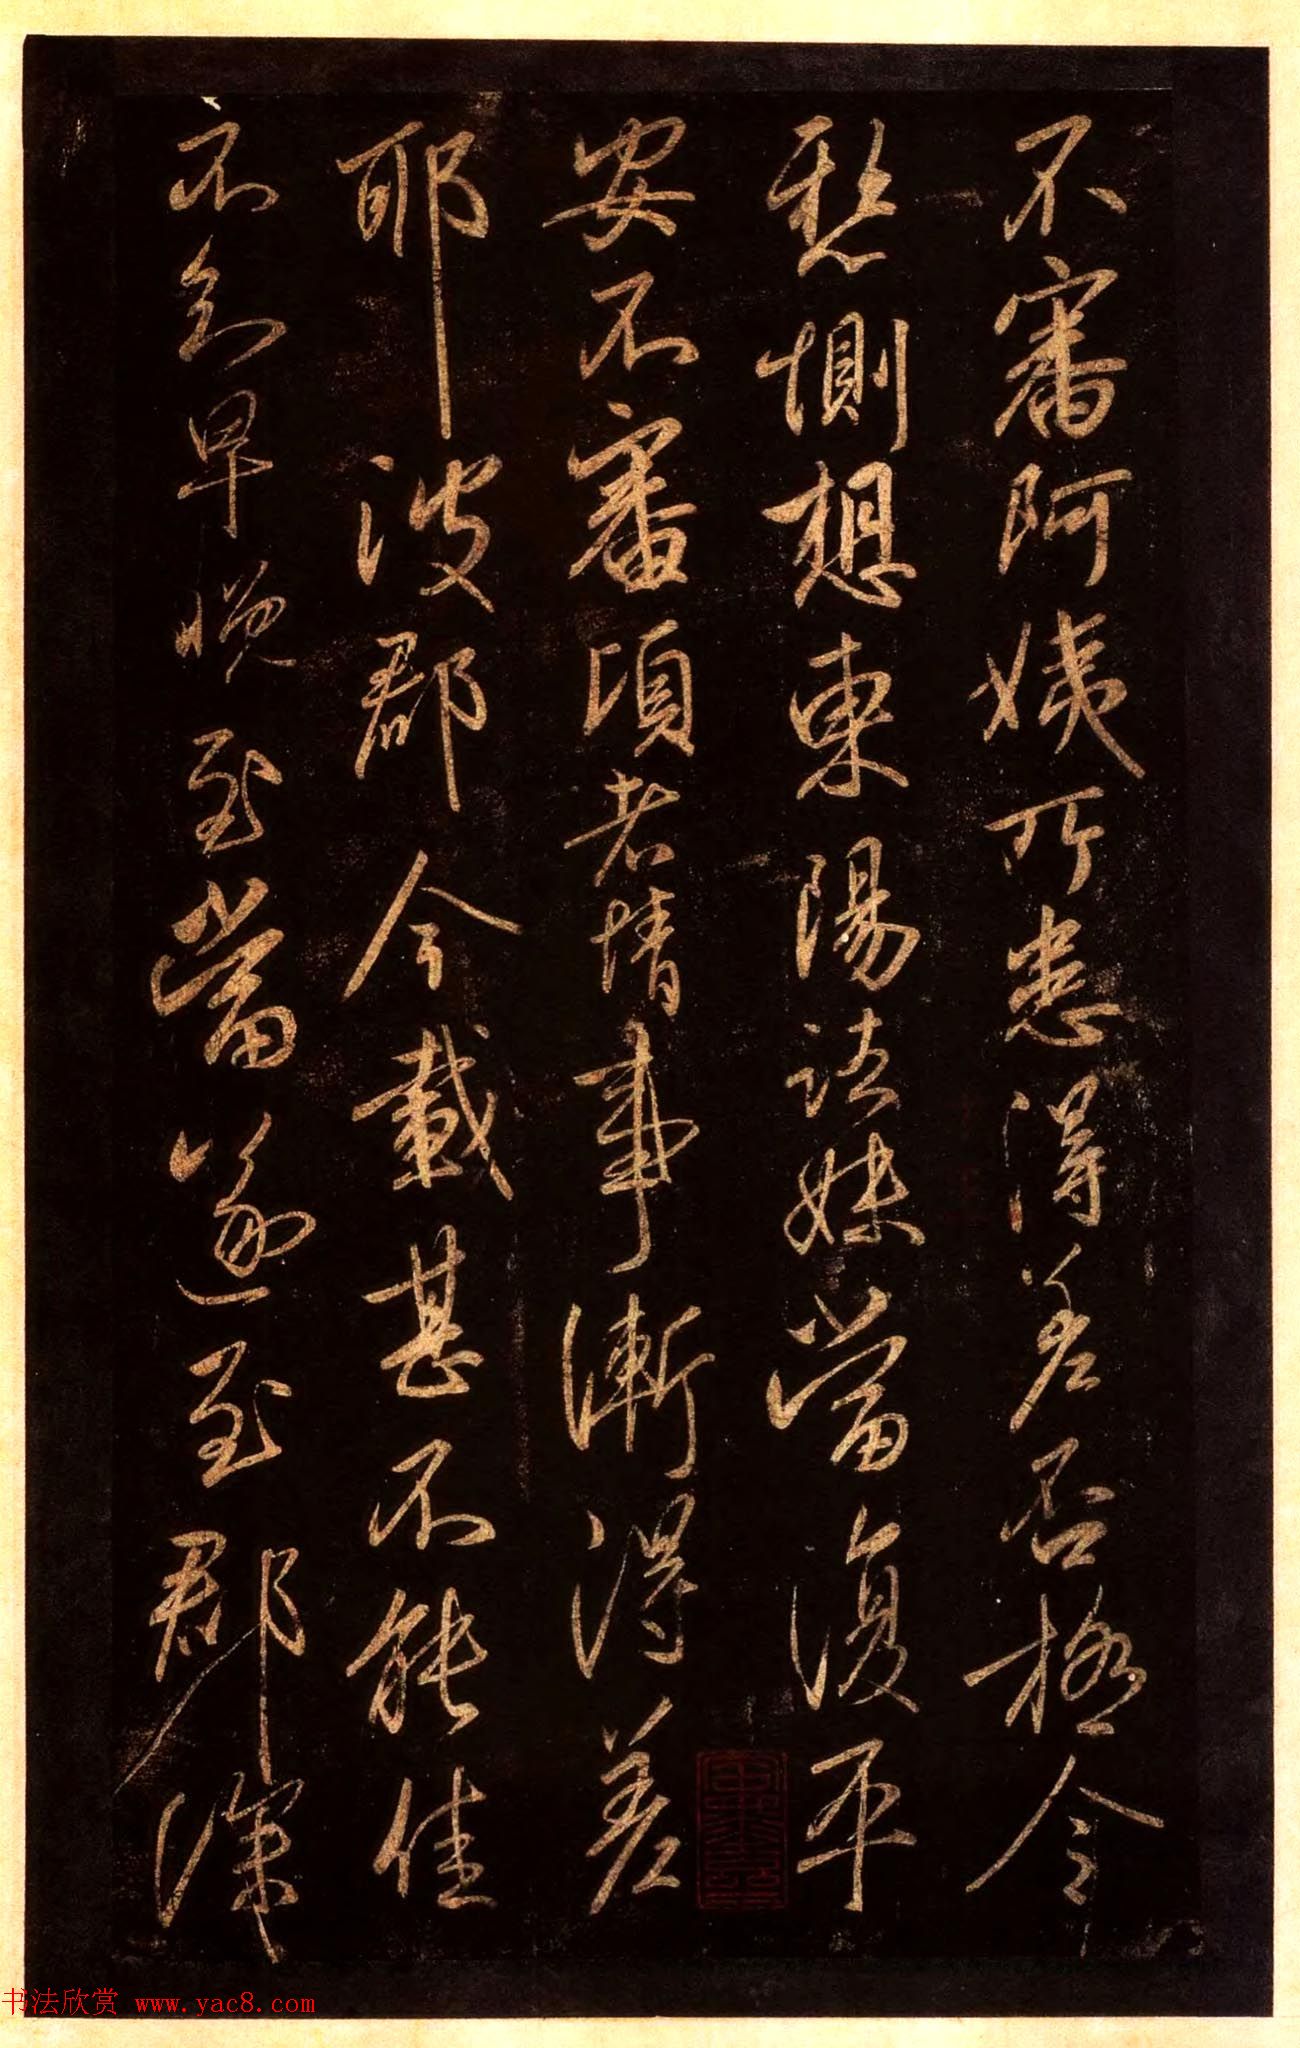 不審阿姨所患得差否極令
愁惻想東陽諸妹當復平
安不審頃者情事漸得差
耶彼郡今載甚不能佳
不知早晚至當遂至郡深
书法欣赏 www.yac8.com